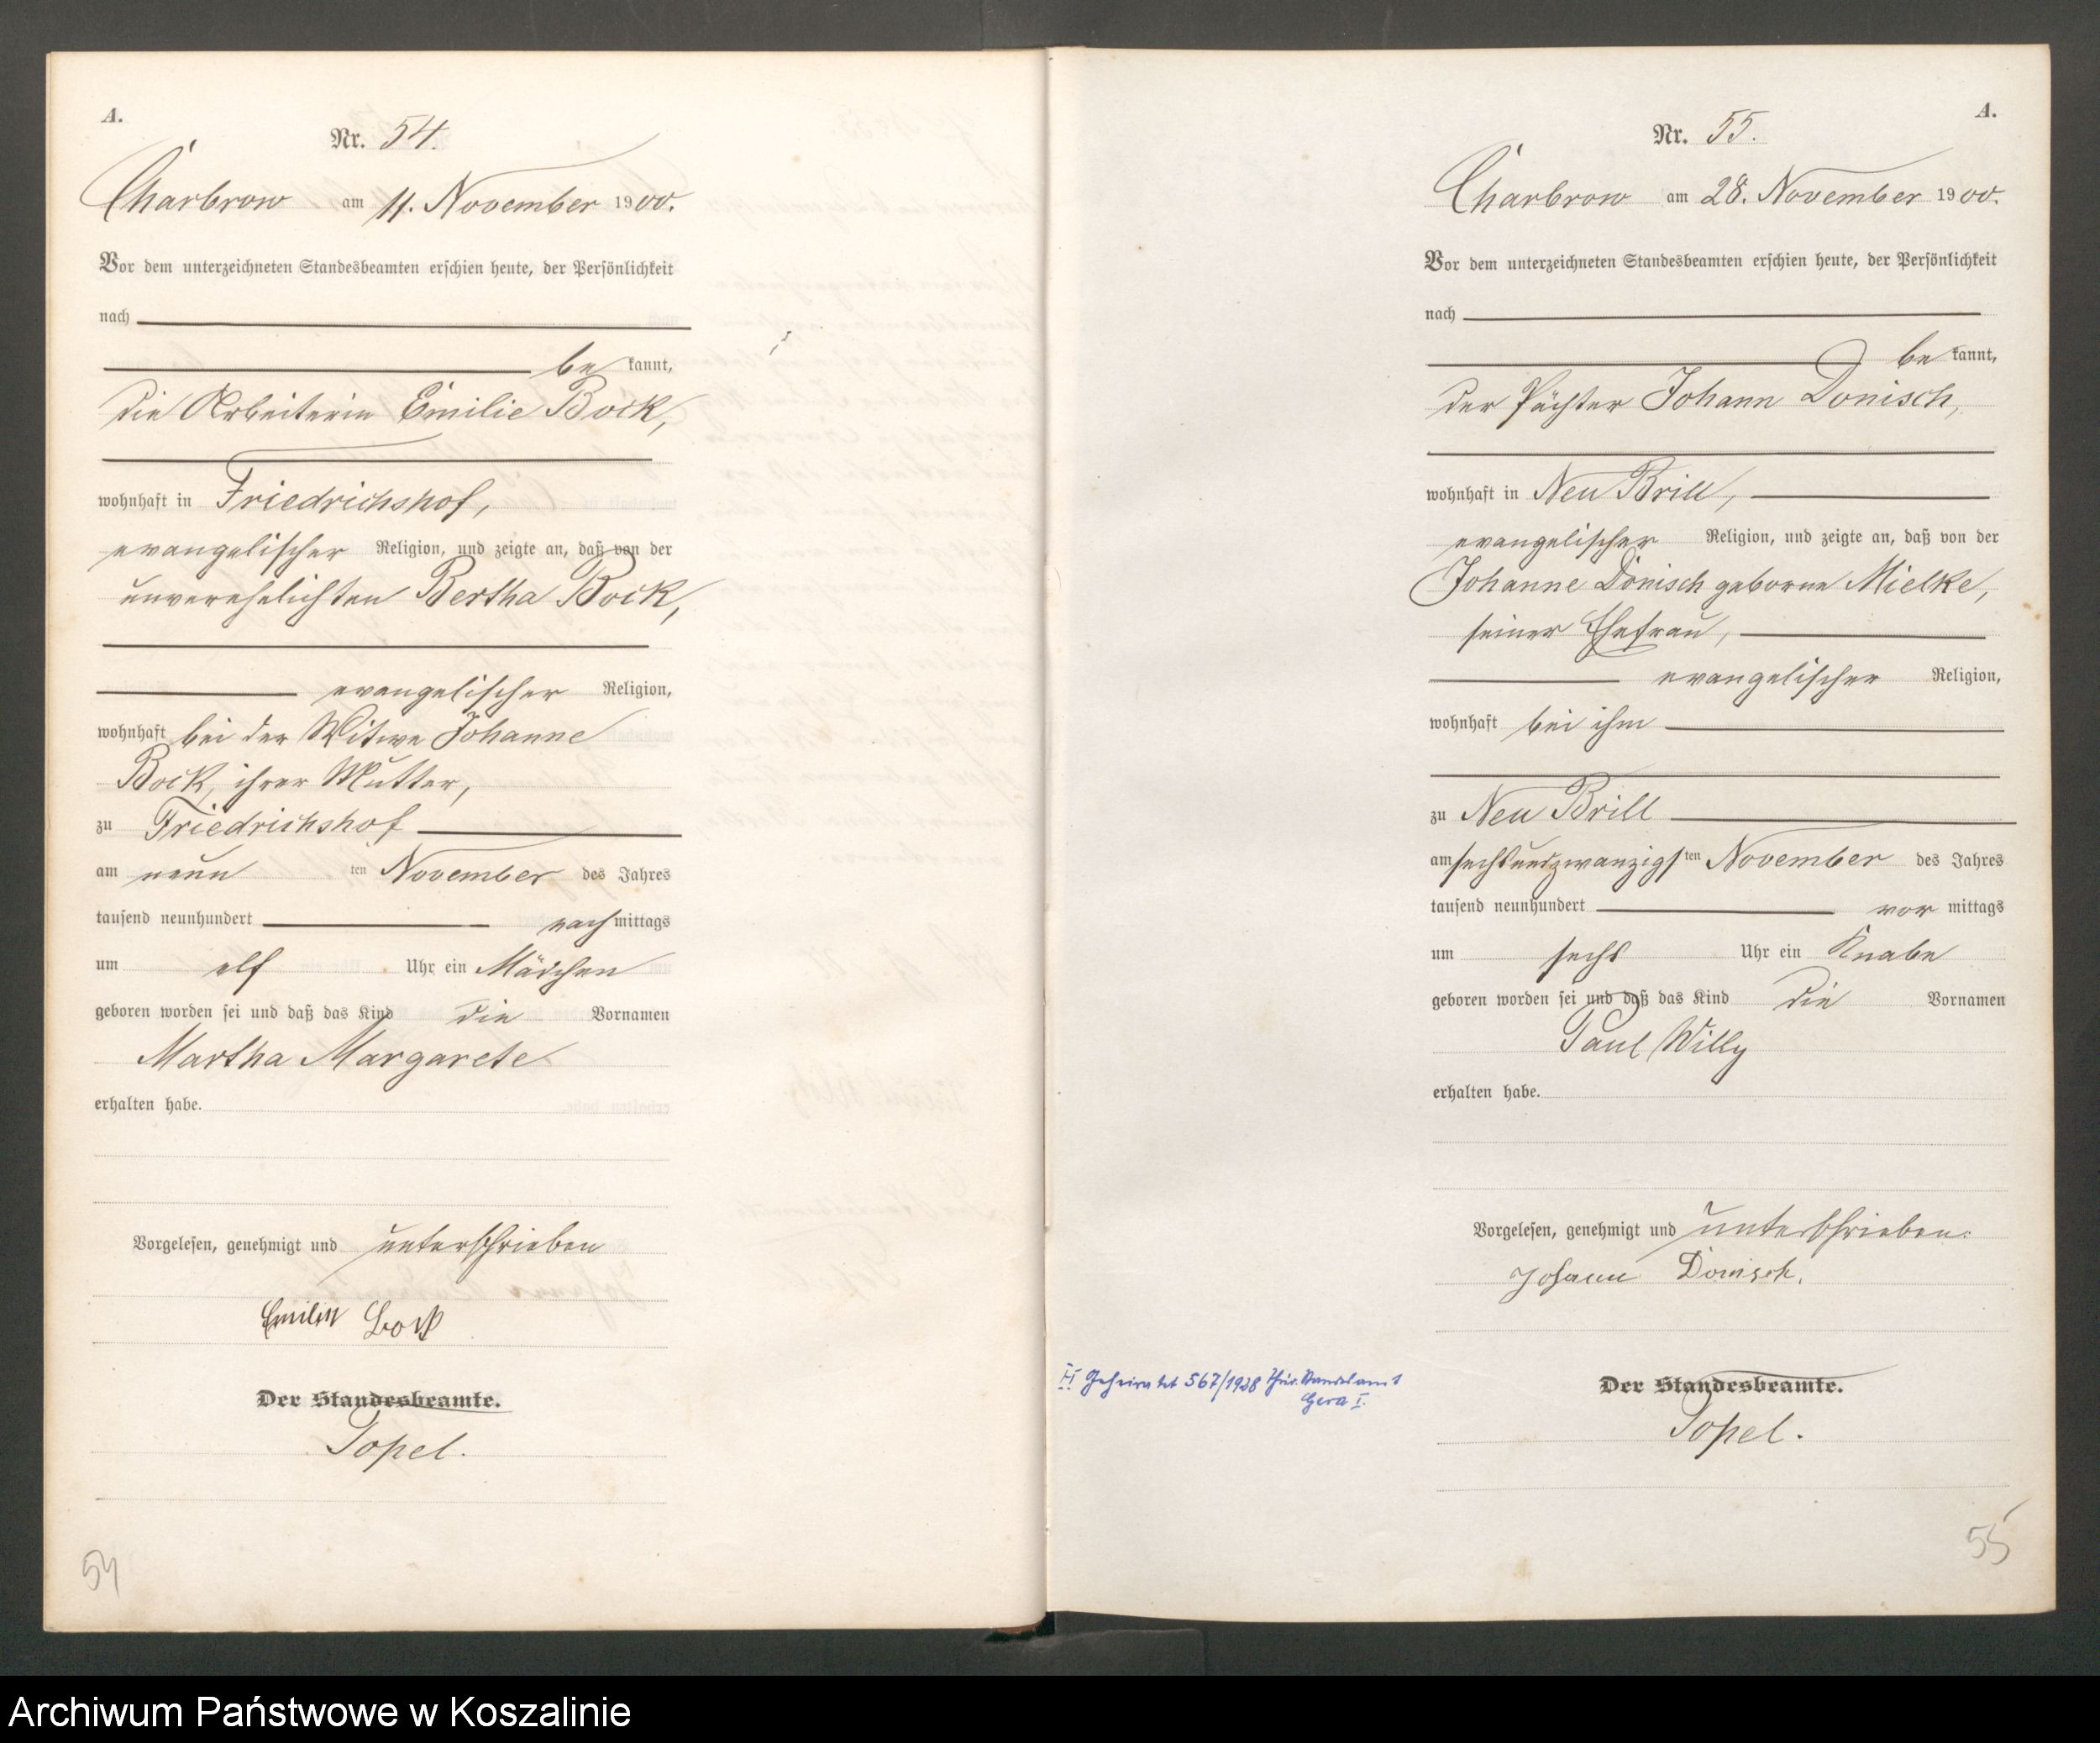 A.
Nr. 54.
Charbrow am 11. November 1900.
Vor dem unterzeichneten Standesbeamten erschien heute, der Persönlichkeit
nach
be kannt,
die Arbeiterin Emilie Bock,
wohnhaft in Friedrichshof,
evangelischer Religion, und zeigte an, daß von der
unverehelichten Bertha Bock,
evangelischer Religion,
wohnhaft bei der Witwe Johanne
Bock, ihrer Mutter,
zu Friedrichshof
am neun ten November des Jahres
tausend neunhundert nach mittags
um elf Uhr ein Mädchen
geboren worden sei und daß das Kind die Vornamen
Martha Margarete
erhalten habe.
Vorgelesen, genehmigt und unterschrieben
Emilie Bock
Der Standesbeamte.
Topel.
54
A.
Nr. 55.
Charbrow am 28. November 1900.
Vor dem unterzeichneten Standesbeamten erschien heute, der Persönlichkeit
nach
be kannt,
der Pächter Johann Dönisch,
wohnhaft in Neu Brill,
evangelischer Religion, und zeigte an, daß von der
Johanne Dönisch geborne Mielke,
seiner Ehefrau,
evangelischer Religion,
wohnhaft bei ihm
zu Neu Brill
am sechsundzwanzigsten November des Jahres
tausend neunhundert vor mittags
um sechs Uhr ein Knabe
geboren worden sei und daß das Kind die Vornamen
Paul Willy
erhalten habe.
Vorgelesen, genehmigt und unterschrieben.
Johann Dönisch.
H Geheiratet 567/1928 Thür. Standesamt
Gera I.
Der Standesbeamte.
Topel.
55
Archiwum Państwowe w Koszalinie